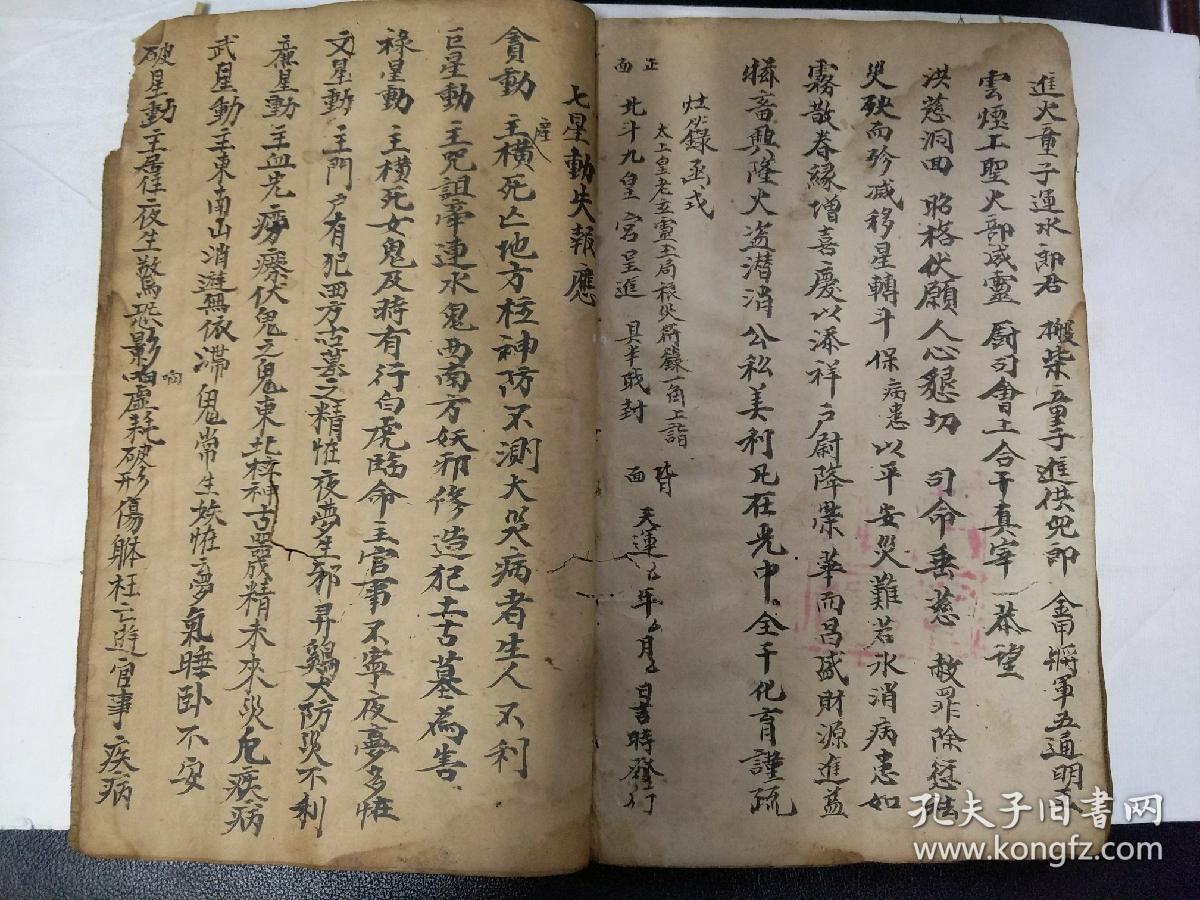 進火童子運水郎君 搬柴童子進供兒郎 金甲將軍五通明
雲煙上聖火部威靈 厨司會上合干真宰 一恭望
洪慈洞回 昭格伏願人心懇切 司命垂慈 赦罪除愆
災殃而殄滅移星轉斗保病患以平安災難若氷消病患如
霧散眷緣增喜慶以添祥戶尉降榮華而昌盛財源進益
牲畜興隆火盗潜消公私美利凡在光中全千化育謹疏
灶籙函式
太上皇老玄靈玉局禳災符籙一角上詣
正面 北斗九皇宮呈進 具半職封 背面 天運 年 月 日吉時發行
七星動失報應
貪動主横死亡地方柱神防不測大災病者生人不利
座
巨星動 主咒詛牽連水鬼西南方妖邪修造犯土古墓為害
祿星動 主横死女鬼及時有行白虎臨命主官事不寧夜夢多怪
文星動 主門戶有犯西方古墓之精怪夜夢生邪并鷄犬防災不利
廉星動 主血光癆瘵伏鬼之鬼東北核神古器成精未來災危疾病
武星動 主東南山消遊無依滯鬼常生妖怪夢氣睡卧不安
破星動 主居住夜生驚恐影响虚耗破形傷躰枉亡遊官事疾病
响
孔夫子旧书网
www.kongfz.com